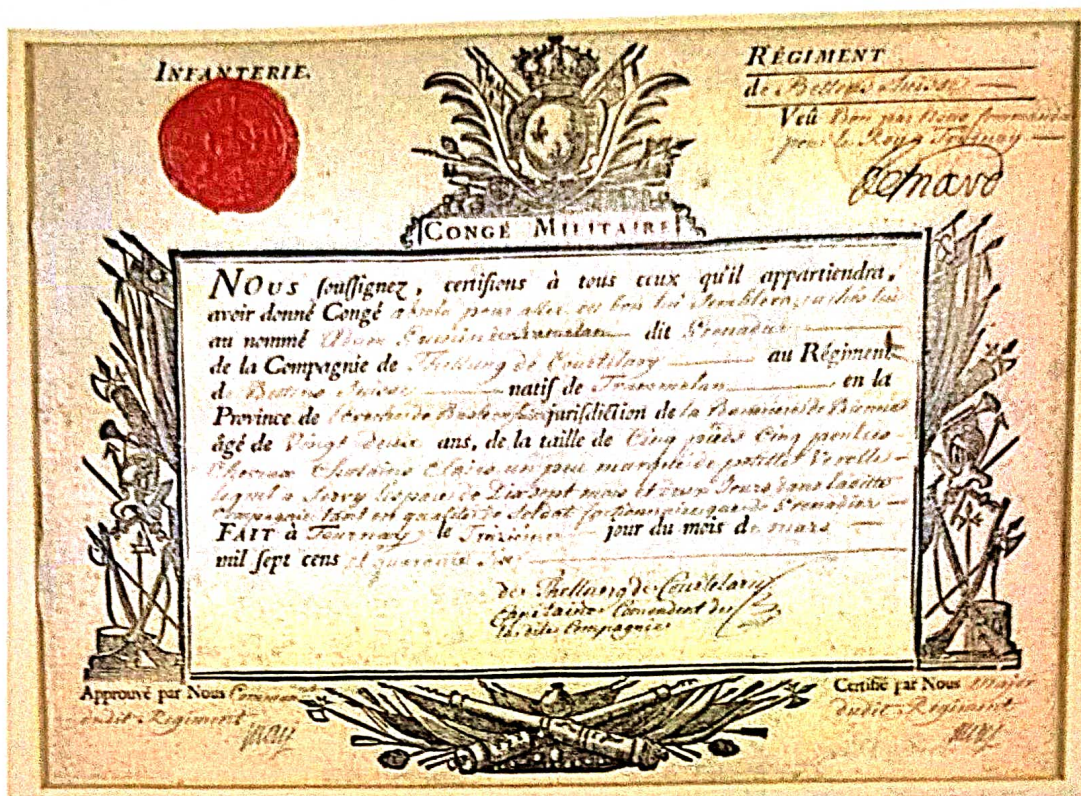 INFANTERIE.
RÉGIMENT
de Bettens Suisse
Veû Bon par Nous Commandant
pour le Roy a Tournay
CONGÉ MILITAIRE
NOUS soussignez, certifions à tous ceux qu'il appartiendra,
avoir donné Congé absolu pour aller ou bon lui Semblera
au nommé Adam dit Grenadier
de la Compagnie de Thellung de Courtelary au Régiment
de Bettens Suisse natif de Tramelan en la
Province de jurisdiction de la de
âgé de Vingt deux ans, de la taille de Cinq pieds Cinq pouces
Cheveux Chatains Claires un peu marqué de petittes Verolles
lequel a Servy l'espace de Dix Sept mois et Jours dans laditte
Compagnie tant en qualité de Soldat que de Grenadier
FAIT à Tournay le jour du mois de mars
mil sept cens et quarante Six
de Thellung de Courtelary
Capitaine Comendent de
laditte Compagnie
Approuvé par Nous
dudit Regiment
May
Certifié par Nous Major
dudit Regiment
May